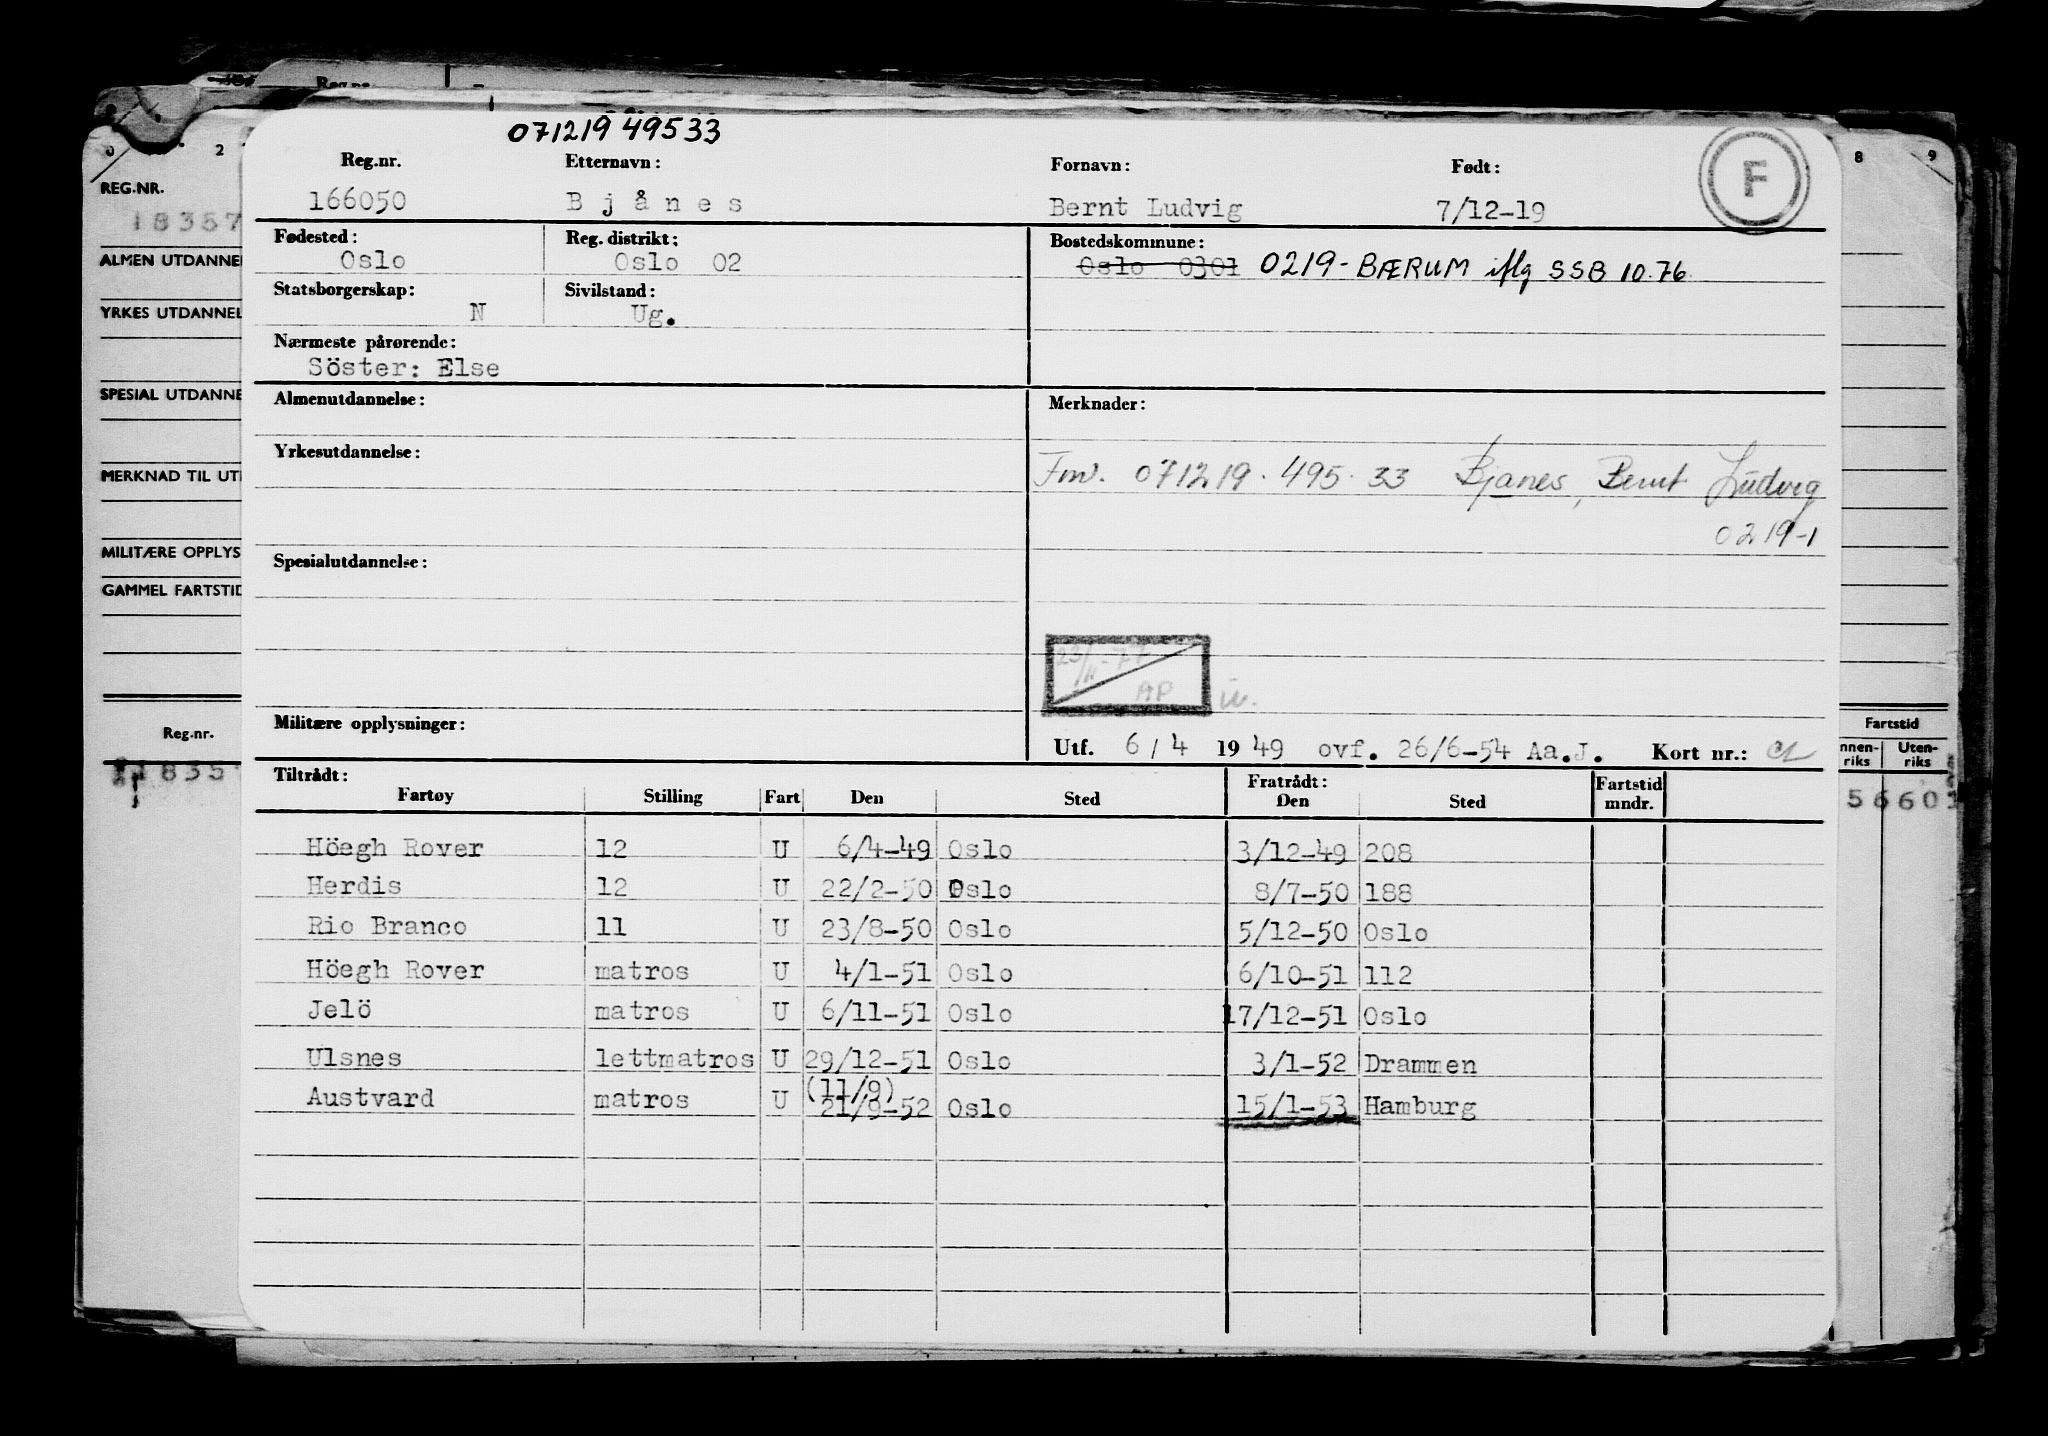 071219 49533
Reg.nr. Etternavn: Fornavn: Født: F
166050 Bjånes Bernt Ludvig 7/12-19
Fødested: Reg. distrikt: Bostedskommune:
Oslo Oslo 02 Oslo 0301 0219-BÆRUM iflg SSB 10.76.
Statsborgerskap: Sivilstand:
N Ug.
Nærmeste pårørende:
Söster: Else
Almenutdannelse: Merknader:
Yrkesutdannelse:
Fnr. 071219.495.33 Bjanes, Bernt Ludvig
0219-1
Spesialutdannelse:
23/11-77
AP
Militære opplysninger:
Utf. 6/4 1949 ovf. 26/6-54 Aa.J. Kort nr.:
Tiltrådt: Fratrådt: Fartstid
Fartøy Stilling Fart Den Sted Den Sted mndr.
Höegh Rover 12 U 6/4-49 Oslo 3/12-49 208
Herdis 12 U 22/2-50 Oslo 8/7-50 188
Rio Branco 11 U 23/8-50 Oslo 5/12-50 Oslo
Höegh Rover matros U 4/1-51 Oslo 6/10-51 112
Jelö matros U 6/11-51 Oslo 17/12-51 Oslo
Ulsnes lettmatros U 29/12-51 Oslo 3/1-52 Drammen
(11/9)
Austvard matros U 21/9-52 Oslo 15/1-53 Hamburg
2
REG.NR.
18357
ALMEN UTDANNE
YRKES UTDANNEL
SPESIAL UTDANNE
MERKNAD TIL UT
MILITÆRE OPPLYS
GAMMEL FARTSTID
Reg.nr.
8 9
Fartstid
nnen-riks Uten-riks